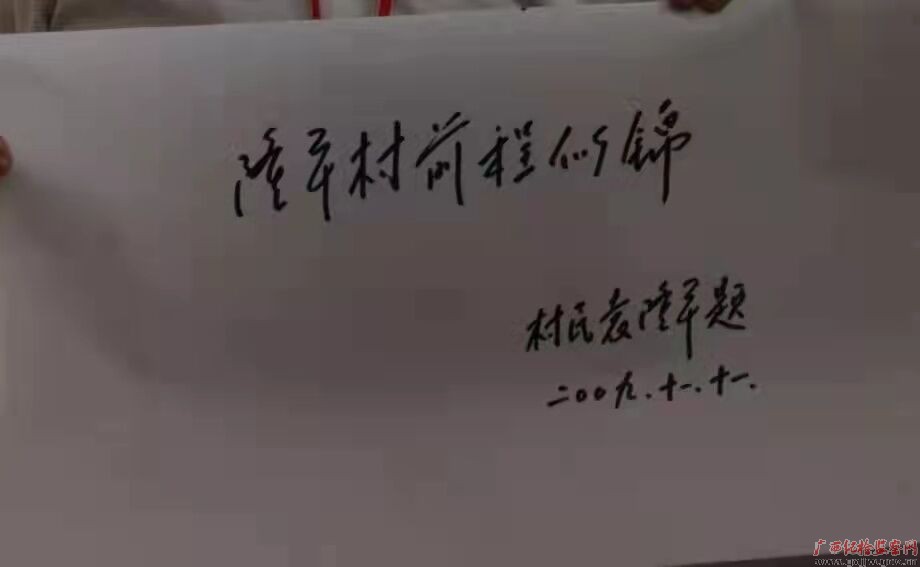 隆平村前程似锦
村民袁隆平题
二00九.十一.十一.
广西纪检监察网
www.gxjjw.gov.cn